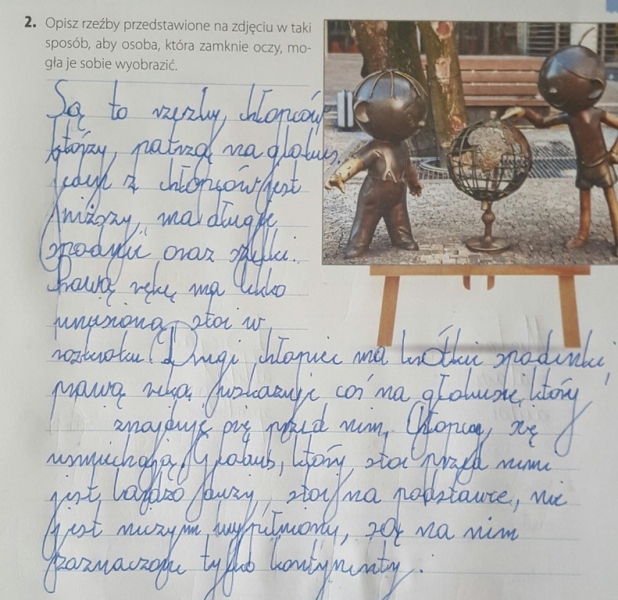 2. Opisz rzeźby przedstawione na zdjęciu w taki
sposób, aby osoba, która zamknie oczy, mo-
gła je sobie wyobrazić.
Są to rzeźby, chłopców
którzy, patrzą na globus.
jeden z chłopców jest
niższy, ma długie
spodnie oraz szelki.
Prawą rękę ma lekko
uniesioną, stoi w
rozkroku. Drugi chłopiec ma krótkie spodenki,
prawą ręką wskazuje coś na globusie, który
znajduje się przed nim. Chłopcy, się
usmiechają. Globus, który stoi przed nimi
jest, bardzo duży, stoi na podstawce, nie
jest niczym wypełniony, są na nim
zaznaczone tylko kontynenty.